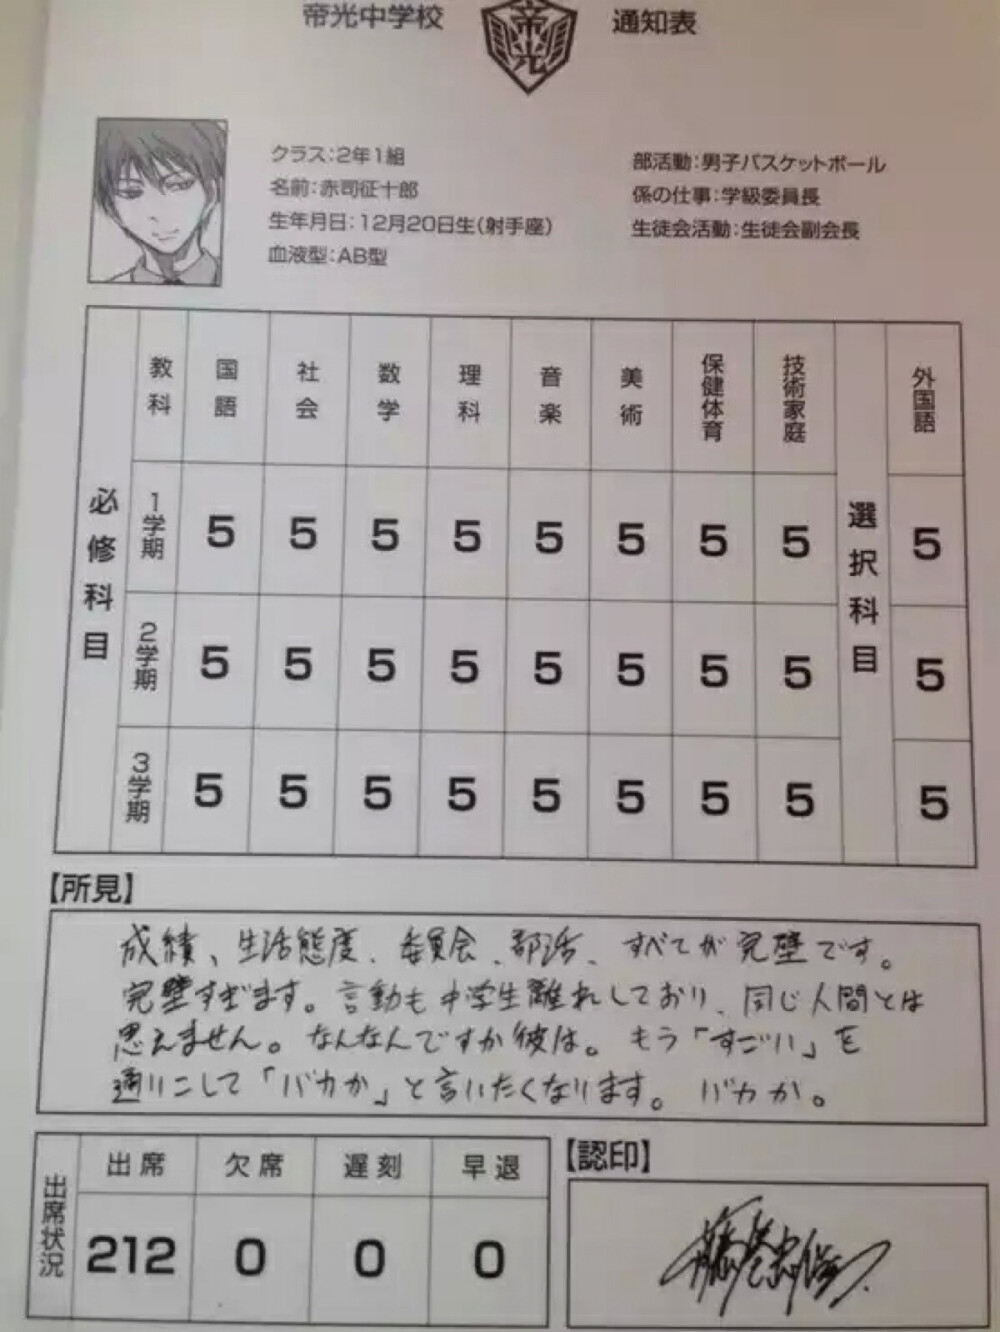 帝光中学校 帝光 通知表
クラス:2年1組
名前:赤司征十郎
生年月日:12月20日生(射手座)
血液型:AB型
部活動:男子バスケットボール
係の仕事:学級委員長
生徒会活動:生徒会副会長
必修科目
教科 国語 社会 数学 理科 音楽 美術 保健体育 技術家庭 選択科目 外国語
1学期 5 5 5 5 5 5 5 5 5
2学期 5 5 5 5 5 5 5 5 5
3学期 5 5 5 5 5 5 5 5 5
【所見】
成績、生活態度、委員会、部活、すべてが完璧です。
完璧すぎます。言動も中学生離れしており、同じ人間とは
思えません。なんなんですか彼は。もう「すごい」を
通りこして「バカか」と言いたくなります。バカか。
出席状況
出席 欠席 遅刻 早退
212 0 0 0
【認印】